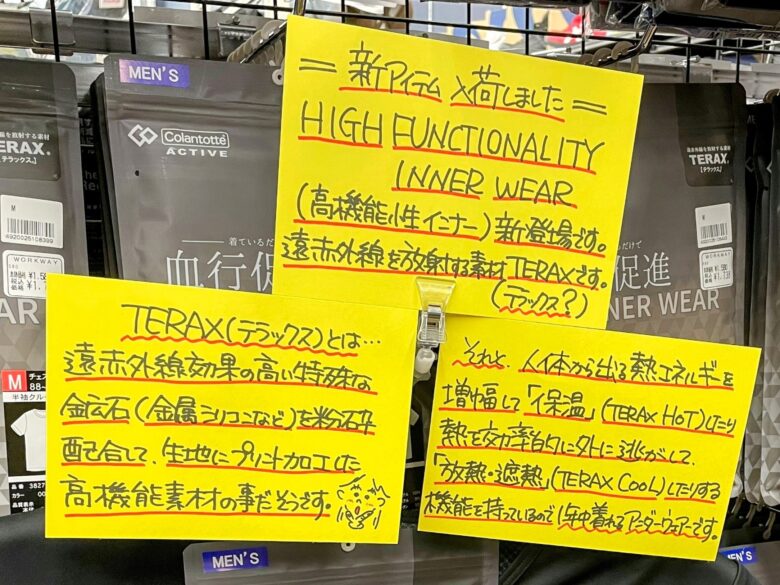 = 新アイテム入荷しました =
HIGH FUNCTIONALITY
INNER WEAR
(高機能性インナー)新登場です。
遠赤外線を放射する素材TERAXです。
(テラックス?)
TERAX(テラックス)とは…
遠赤外線効果の高い特殊な
鉱石(金属シリコンなど)を粉砕
配合して、生地にプリント加工した
高機能素材の事だそうです。
それと、人体から出る熱エネルギーを
増幅して「保温」(TERAX HOT)したり
熱を効率的に外に逃がして、
「放熱・遮熱」(TERAX COOL)したりする
機能を持っているので1年中着れるアンダーウェアーです。
MEN'S
Colantotte
ACTIVE
着ているだ
血行促
TERAX
【テラックス】
4920025108399
WORKWAY
M
半袖クル
遠赤外線を放射する素材
TERAX
【テラックス】
M
WORKWAY
だけで
促進
INNER WEAR
MEN'S
MEN'S